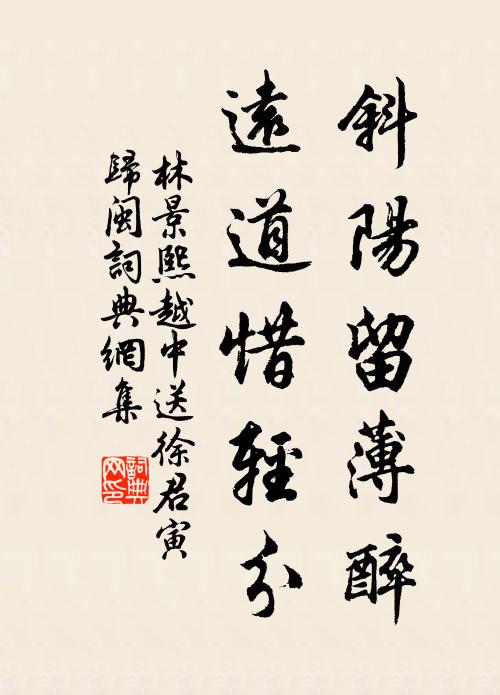 斜陽留薄醉
遠道惜輕分
林景熙越中送徐君寅
歸閩詞典網集
詞典网印